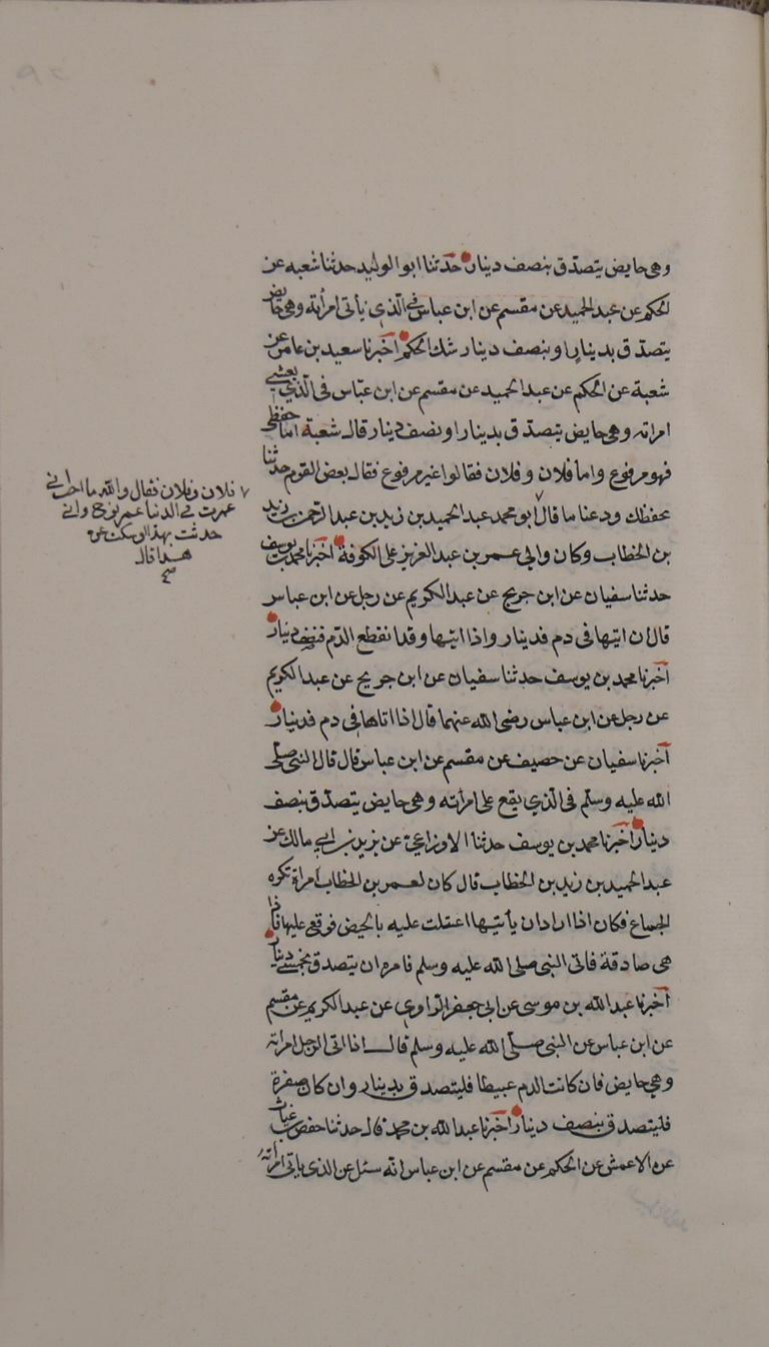 وهى حايض يتصدق بنصف دينار حدثنا ابو الوليد حدثنا شعبه عن
الحكم عن عبد الحميد عن مقسم عن ابن عباس في الذي يأتى امرأته وهى حايض
يتصدق بدينار او بنصف دينار شك الحكم اخبرنا سعيد بن عامر عن
شعبة عن الحكم عن عبد الحميد عن مقسم عن ابن عباس فى الذي يغشى
امراته وهى حايض يتصدق بدينار او نصف دينار قال شعبة اما حفظى
فهو مرفوع واما فلان وفلان فقالوا غير مرفوع فقال بعض القوم حدثنا
بحفظك ودعنا ما قال ابو محمد عبد الحميد بن زيد بن عبد الرحمن بن زيد
بن الخطاب وكان والي عمر بن عبد العزيز على الكوفة اخبرنا محمد بن يوسف
حدثنا سفيان عن ابن جريج عن عبد الكريم عن رجل عن ابن عباس
قال ان اتيتها فى دم فدينار واذا اتيتها وقد انقطع الدم فنصف دينار
اخبرنا محمد بن يوسف حدثنا سفيان عن ابن جريج عن عبد الكريم
عن رجل عن ابن عباس رضى الله عنهما قال اذا اتاها فى دم فدينار
اخبرنا سفيان عن حصيف عن مقسم عن ابن عباس قال قال النبى صلى
الله عليه وسلم فى الذي يقع على امرأته وهى حايض يتصدق بنصف
دينار اخبرنا محمد بن يوسف حدثنا الاوزاعى عن يزيد بن ابي مالك عن
عبد الحميد بن زيد بن الخطاب قال كان لعمر بن الخطاب امراة تكره
الجماع فكان اذا اراد ان يأتيها اعتلت عليه بالحيض فوقع عليها فاذا
هى صادقة فاتى النبى صلى الله عليه وسلم فامره ان يتصدق بخمسي دينار
اخبرنا عبد الله بن موسى عن ابى جعفر الراوي عن عبد الكريم عن مقسم
عن ابن عباس عن النبى صلى الله عليه وسلم قال اذا اتى الرجل امراته
وهي حايض فان كانت الدم عبيطا فليتصدق بدينار وان كان صفرة
فليتصدق بنصف دينار اخبرنا عبد الله بن محمد قال حدثنا حفص بن غياث
عن الاعمش عن الحكم عن مقسم عن ابن عباس انه سئل عن الذى ياتى امرأته
فلان وفلان فقال والله ما احب انى
عمرت فى الدنيا عمر نوح وانى
حدثت بهذا او سكت عن
هذا قال
صح